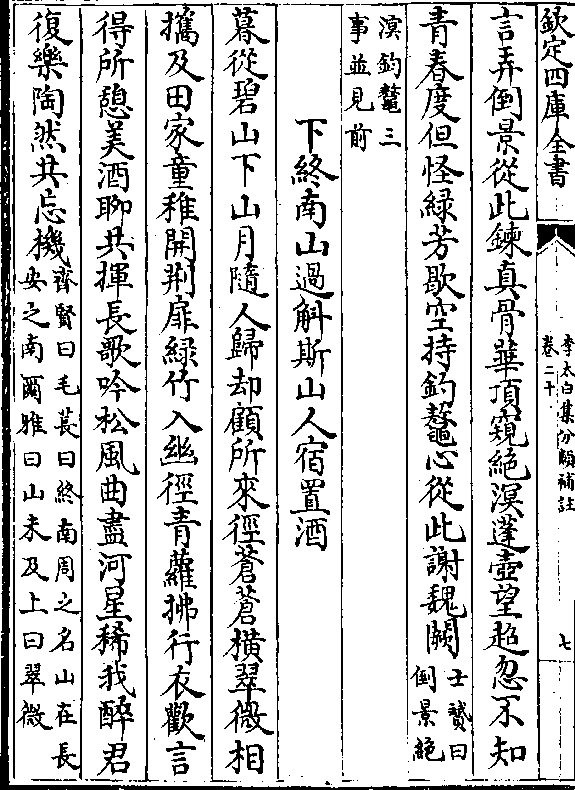 欽定四庫全書
李太白集分類補註
卷二十
七
言弄倒景從此鍊真骨華頂窺絕溟蓬壺望超忽不知
青春度但怪綠芳歇空持釣鼇心從此謝魏闕
士贇曰
倒景絕
溟釣鼇三
事並見前
下終南山過斛斯山人宿置酒
暮從碧山下山月隨人歸却顧所來徑蒼蒼橫翠微相
攜及田家童稚開荆扉綠竹入幽徑青蘿拂行衣歡言
得所憩美酒聊共揮長歌吟松風曲盡河星稀我醉君
復樂陶然共忘機
齊賢曰毛萇曰終南周之名山在長
安之南爾雅曰山未及上曰翠微